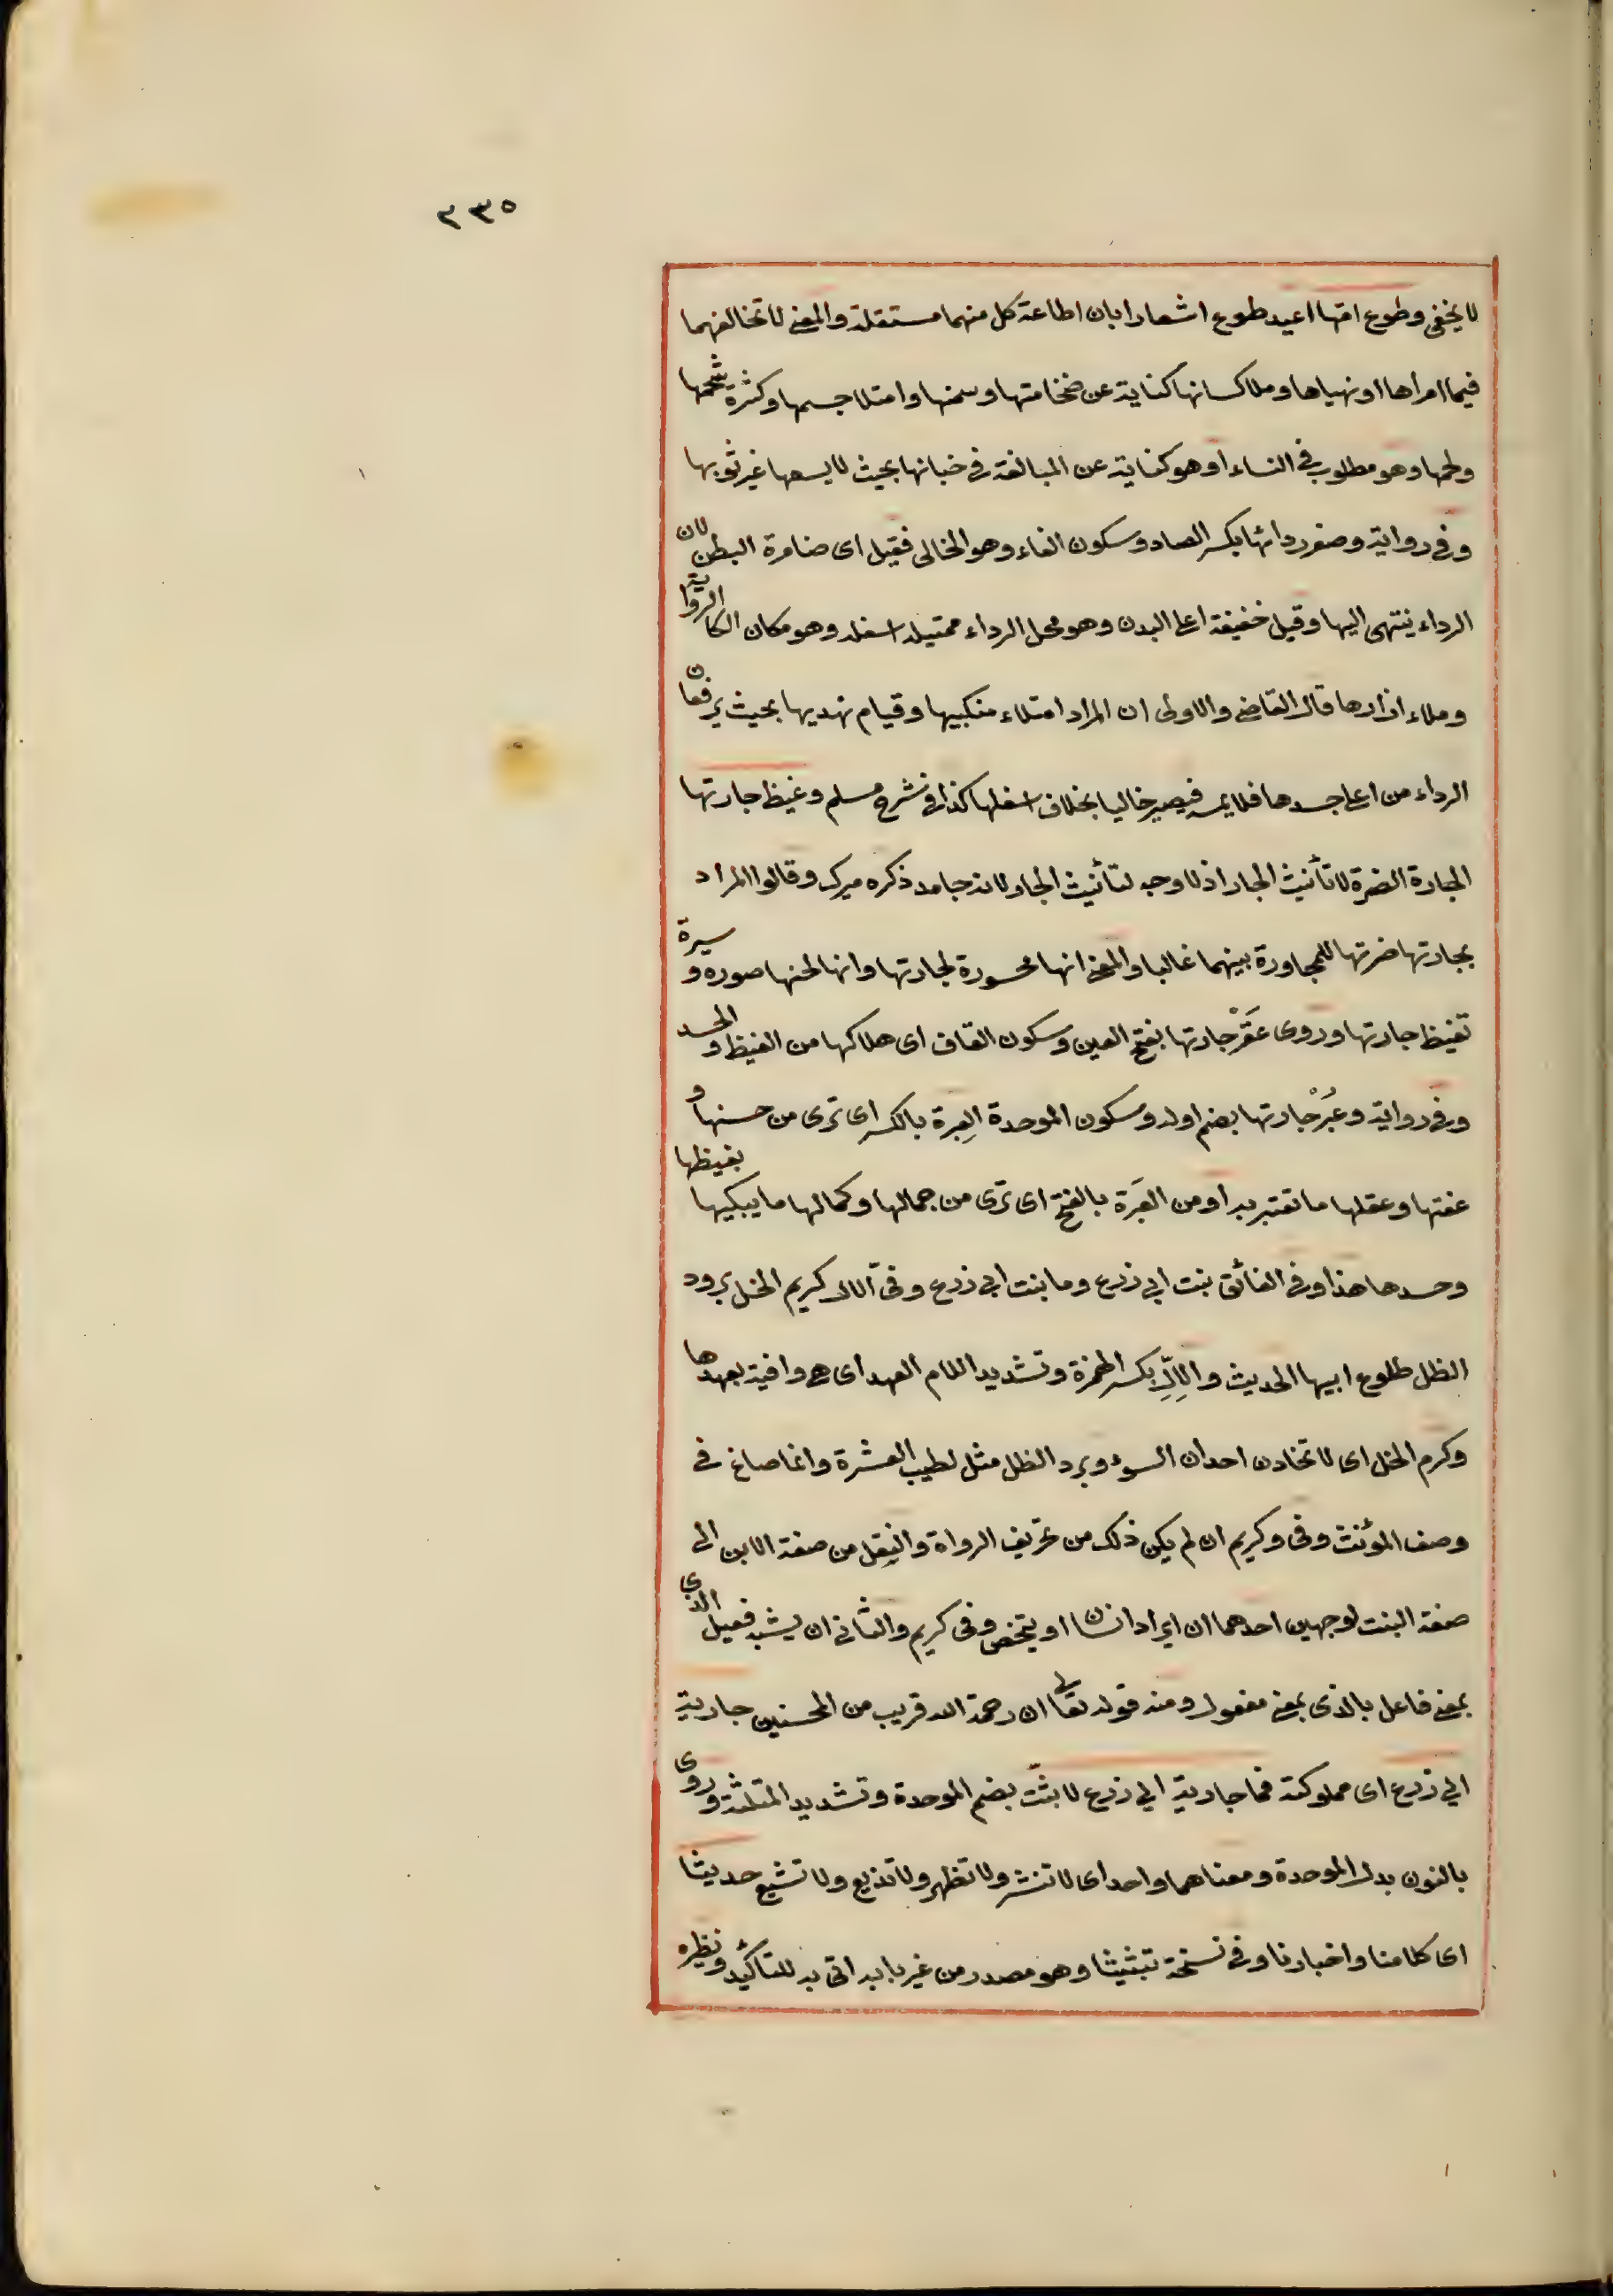 ٢٣٥
لا يخفى وطوع امها اعيد طوع اشعارا بان اطاعة كل منهما مستقلة والمعنى لا تخالفهما
فيما امراها او نهياها وملا كسائها كناية عن ضخامتها وسمنها وامتلا جسمها وكثرة شحمها
ولحمها وهو مطلوب في النساء او هو كناية عن المبالغة في خبائها بحيث لا يسعها غير ثوبها
وفي رواية وصفر ردائها بكسر الصاد وسكون الفاء وهو الخالى فقيل اى ضامرة البطن لان
الرداء ينتهى اليها وقيل خفيفة اعلى البدن وهو محل الرداء ممتيلة اسفله وهو مكان الكا الرواية
وملاء ازارها قال القاضى والاولى ان المراد امتلاء منكبيها وقيام نهديها بحيث يرفعان
الرداء من اعلى جسدها فلا يمسه فيصير خاليا بخلاف اسفلها كذا في شرح مسلم وغيظ جارتها
الجارة الضرة لا تأنيث الجار اذ لا وجه لتأنيث الجار لانه جامد ذكره ميرك وقالوا المراد
بجارتها ضرتها للمجاورة بينهما غالبا والمعنى انها محسودة لجارتها وانها لحسنها صورة وسيرة
تغيظ جارتها وروى عَقْر جارتها بفتح العين وسكون القاف اى هلاكها من الغيظ والحسد
وفي رواية وعُبْر جارتها بضم اوله وسكون الموحدة العِبرة بالكسر اى ترى من حسنها و
عفتها وعقلها ما تعتبر به او من العَبرة بالفتح اى ترى من جمالها وكمالها ما يبكيها بغيظها
وحسدها هذا وفي الفائق بنت ابى زرع وما بنت ابى زرع وفىّ الال كريم الخل برود
الظل طلوع ابيها الحديث والإلّ بكسر الهمزة وتشديد اللام العهد اى هى وافية بعهدها
وكرم الخل اى لا تخادن اخدان السوء وبرد الظل مثل لطيب العشرة وانما صاغ في
وصف المؤنث وفى وكريم ان لم يكن ذلك من تحريف الرواة والنقل من صفة الابن الى
صفة البنت لوجهين احدهما ان ايراد انسان او شخص وفى كريم والثاني ان يشبه فعيل الذي
بمعنى فاعل بالذى بمعنى مفعول ومنه قوله تعالى ان رحمة الله قريب من المحسنين جارية
ابي زرع اى مملوكته فما جارية ابي زرع لا تبثّ بضم الموحدة وتشديد المثلثة وروى
بالنون بدل الموحدة ومعناهما واحد اى لا تنشر ولا تظهر ولا تذيع ولا تشيع حديثنا
اى كلامنا واخبارنا وفي نسخة تبثيثا وهو مصدر من غير بابه اتى به للتأكيد ونظيره